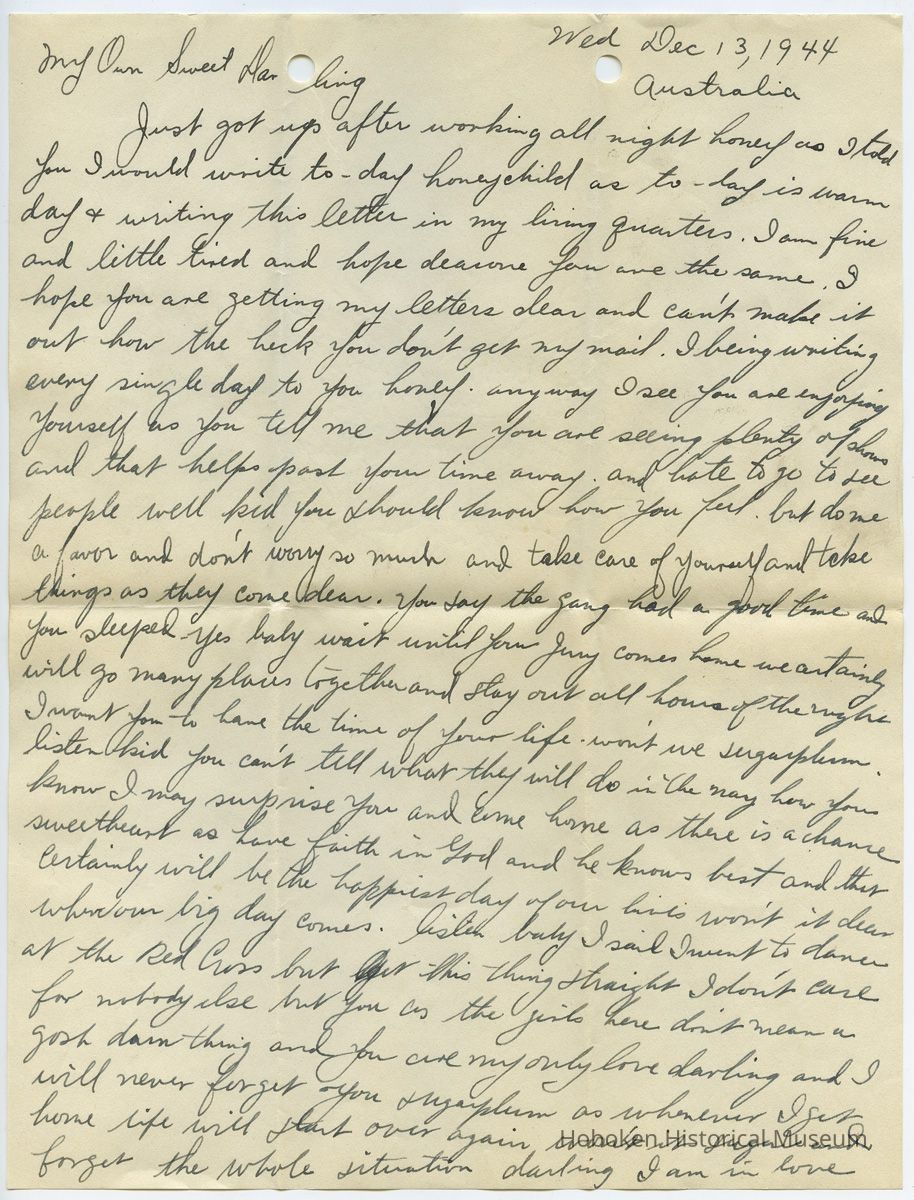 Wed Dec 13, 1944
My Own Sweet Darling
Australia
Just got up after working all night honey as I told
you I would write to-day honeychild as to-day is warm
day & writing this letter in my living quarters. I am fine
and little tired and hope dearone you are the same. I
hope you are getting my letters dear and can't make it
out how the heck you don't get my mail. I being writing
every single day to you honey. anyway I see you are enjoying
yourself as you tell me that you are seeing plenty of shows
and that helps past your time away. and hate to go to see
people well kid you should know how you feel. but do me
a favor and don't worry so much and take care of yourself and take
things as they come dear. you say the gang had a good time and
you sleeped. yes baby wait until your comes home we certainly
will go many places together and stay out all hours of the night
I want you to have the time of your life. won't we sugarplum
listen kid you can't tell what they will do in the navy how you
know I may surprise you and come home as there is a chance
sweetheart as have faith in God and he knows best and that
certainly will be the happiest day of our lives won't it dear
when our big day comes. listen baby I said I went to dance
at the Red Cross but get this thing straight I don't care
for nobody else but you as the girls here don't mean a
gosh darn thing and you are my only love darling and I
will never forget you sugarplum as whenever I get
home life will start over again and
forget the whole situation darling I am in love
Hoboken Historical Museum